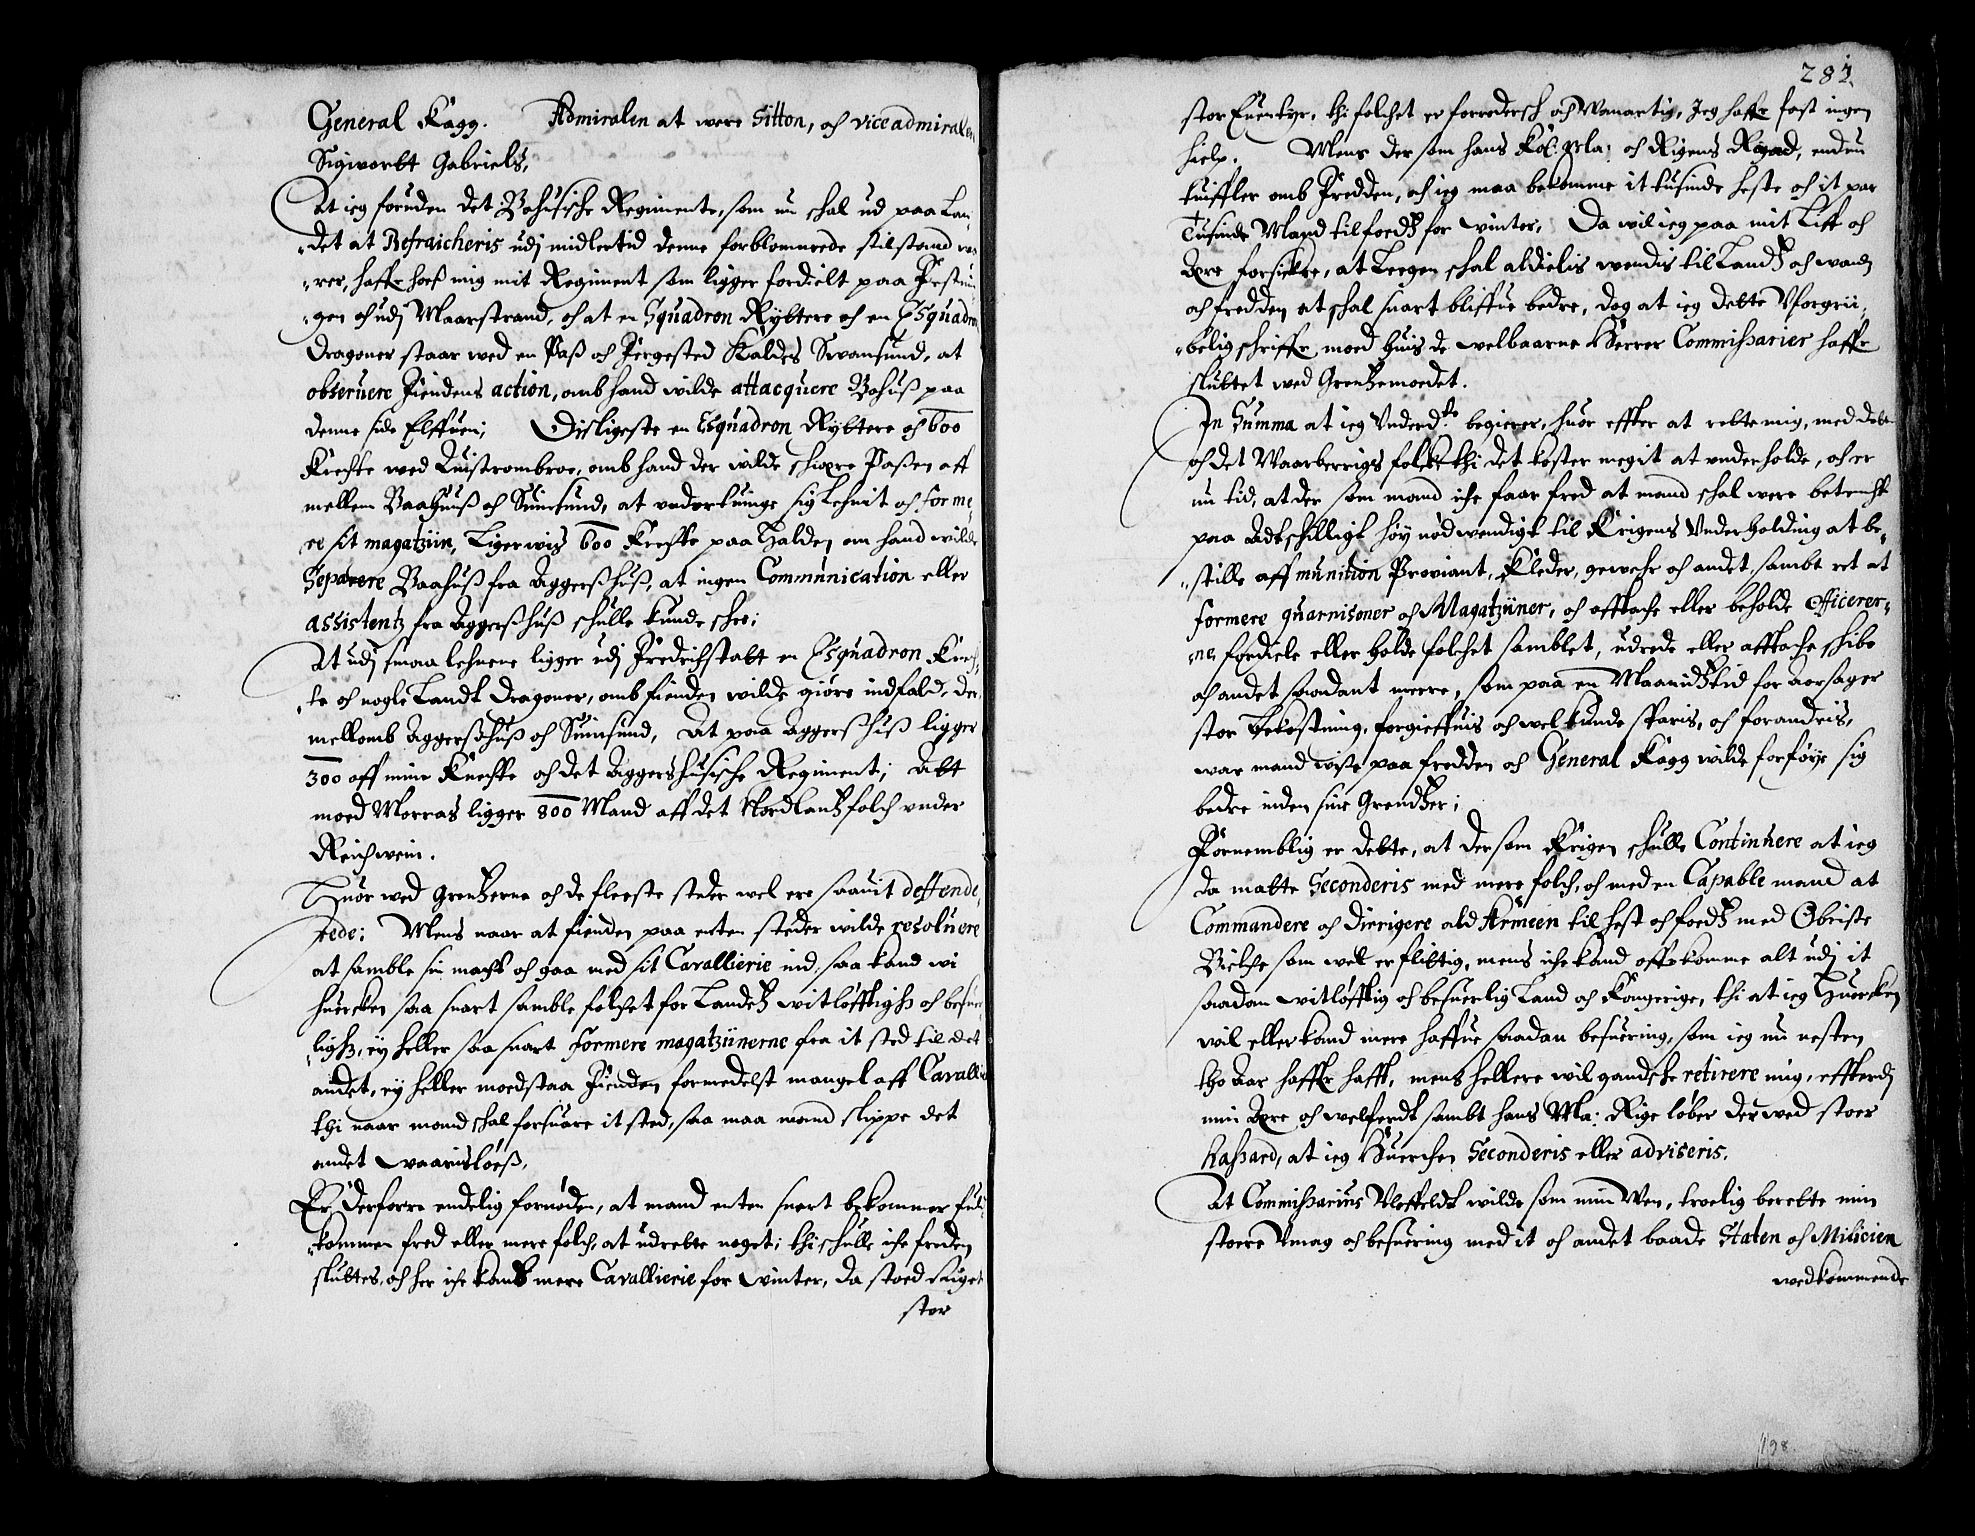 General Kagg. Admiralen at were Sitton, och viceadmiralen
Sigwortt Gabrielß,
At ieg foruden det Bohusische Regimente, som nu schal ud paa Lan-
det at Refraicheris udj midlertid denne forblommede stilstand wa-
rer, haffr hoeß mig mit Regiment som ligger fordielt paa Festnin-
gen och udj Maarstrand, och at en Squadron Rÿttere och en Esquadron
Dragoner staar wed en Paß och Fergested Kaldes Swansund, at
obseruere Fiendens action, omb hand wilde attacquere Bohuß paa
denne side Elffuen; Disligeste en Esquadron Rÿttere och 600
Knechte wed Quistrombroe, omb hand der wilde schiære Paßen aff
mellem Baahuß och Suinsund, at undertuinge sig Lehnit och forme-
re sit magatziin, Ligerwis 600 Knechte paa Halden, om hand wilde
Separere Baahuß fra Aggerßhuß, at ingen Communication eller
assistentz fra Aggerßhuß schulle kunde schee;
At udj smaa lehnene ligger udj Fredrichstatt en Esquadron Knech-
te och nogle Landt Dragoner, omb fienden wilde giöre indfald, der
mellomb Aggerßhuß och Suinsund, At paa Aggerßhuß ligger
300 aff mine Knechte och det Aggershusische Regiment; Att
moed Morras ligger 800 Mand aff det Nordlanß folch under
Reichwein.
Huor wed Grenßerne och de fleeste steder wel ere saauit deffende-
rede; Mens naar at fienden paa enten steder wilde resoluere
at samble sin macht och gaa med sit Cavallierie ind, saa kand wi
huercken saa snart samble folchet for Landetz witlöfftigh: och besuer-
ligh:, eÿ heller saa snart formere magatziinerne fra it sted til det
andet, eÿ heller moedstaa Fienden formedelst mangel aff Cavalli
thi naar mand schal forsuare it sted, saa maa mand slippe det
andet waarisløeß,
Er derforre endelig fornöden, at mand enten snart bekommer ful-
kommen fred eller mere folch, at udrette noget; thi schulle iche freden
sluttes, och her iche kand mere Cavallierie for winter, da stoed Riget
stor
281.
stor Euentyr, thi folchet er forredersch och Wanartig, Jeg haffr fast ingen
hielp. Mens der som hans Kol: Ma: och Rigens Raad, endnu
tuiffler omb Fredden, och ieg maa bekomme it tusinde heste och it par
Tusinde Mand til foedß for winter, Da wil ieg paa mit Liff och
Ære forsickre, at Legen schal aldielis wendis til Landß och wand,
och fredden at schal snart bliffue bedre, dog at ieg dette Uforgrii-
belig schriffr moed huis de welbaarne Herrer Commissarier haffr
sluttet wed Grenßemoedet.
In Summa at ieg Underd:te begierer, huor effter at rette mig, med dette
och det Waarberrigs folch thi det koster megit at underholde, och er
nu tid, at der som mand iche faar fred at mand schal were betencht
paa Adtschilligt höÿ nödwendigt til Krigens Underholding at be-
stille aff munition Proviant, Kleder, gewehr och andet, sambt ret at
formere quarnisoner och Magatziner, och afftache eller beholde officerer-
ne, fordiele eller holde folchet samblet, udrede eller afftache schibe
och andet saadant meere, som paa en Maanidß tid for aarsager
stor bekostning, forgieffuis och wel kunde sparis, och forandris,
war mand wiße paa fredden och General Kagg wilde forföÿe sig
bedre inden sine Grendßer;
Fornemblig er dette, at dersom Krigen schulle Continuere at ieg
da matte Seconderis med mere folch, och med en Capable mand at
Commandere och dirrigere ald Armeen til hest och foedß med Obriste
Bielche som wel er flittig, mens iche kand offrkomme alt udj it
saadan witlöfftig och besuerlig Land och Kongerige, thi at ieg Huercken
wil eller kand mere haffue saadan besuering, som ieg nu nesten
tho Aar haffr hafft, mens hellere wil gandske retirere mig, effterdj
min Ære och welferdt sambt hans Ma: Rige løber der wed stoer
hassard, at ieg Huerchen Seconderis eller adviseris.
At Commissarius Uleffeldt wilde som min Wen, troelig berette min
stoere Umag och besuering med it och andet baade Staten och Milicien
wedkommende
198.